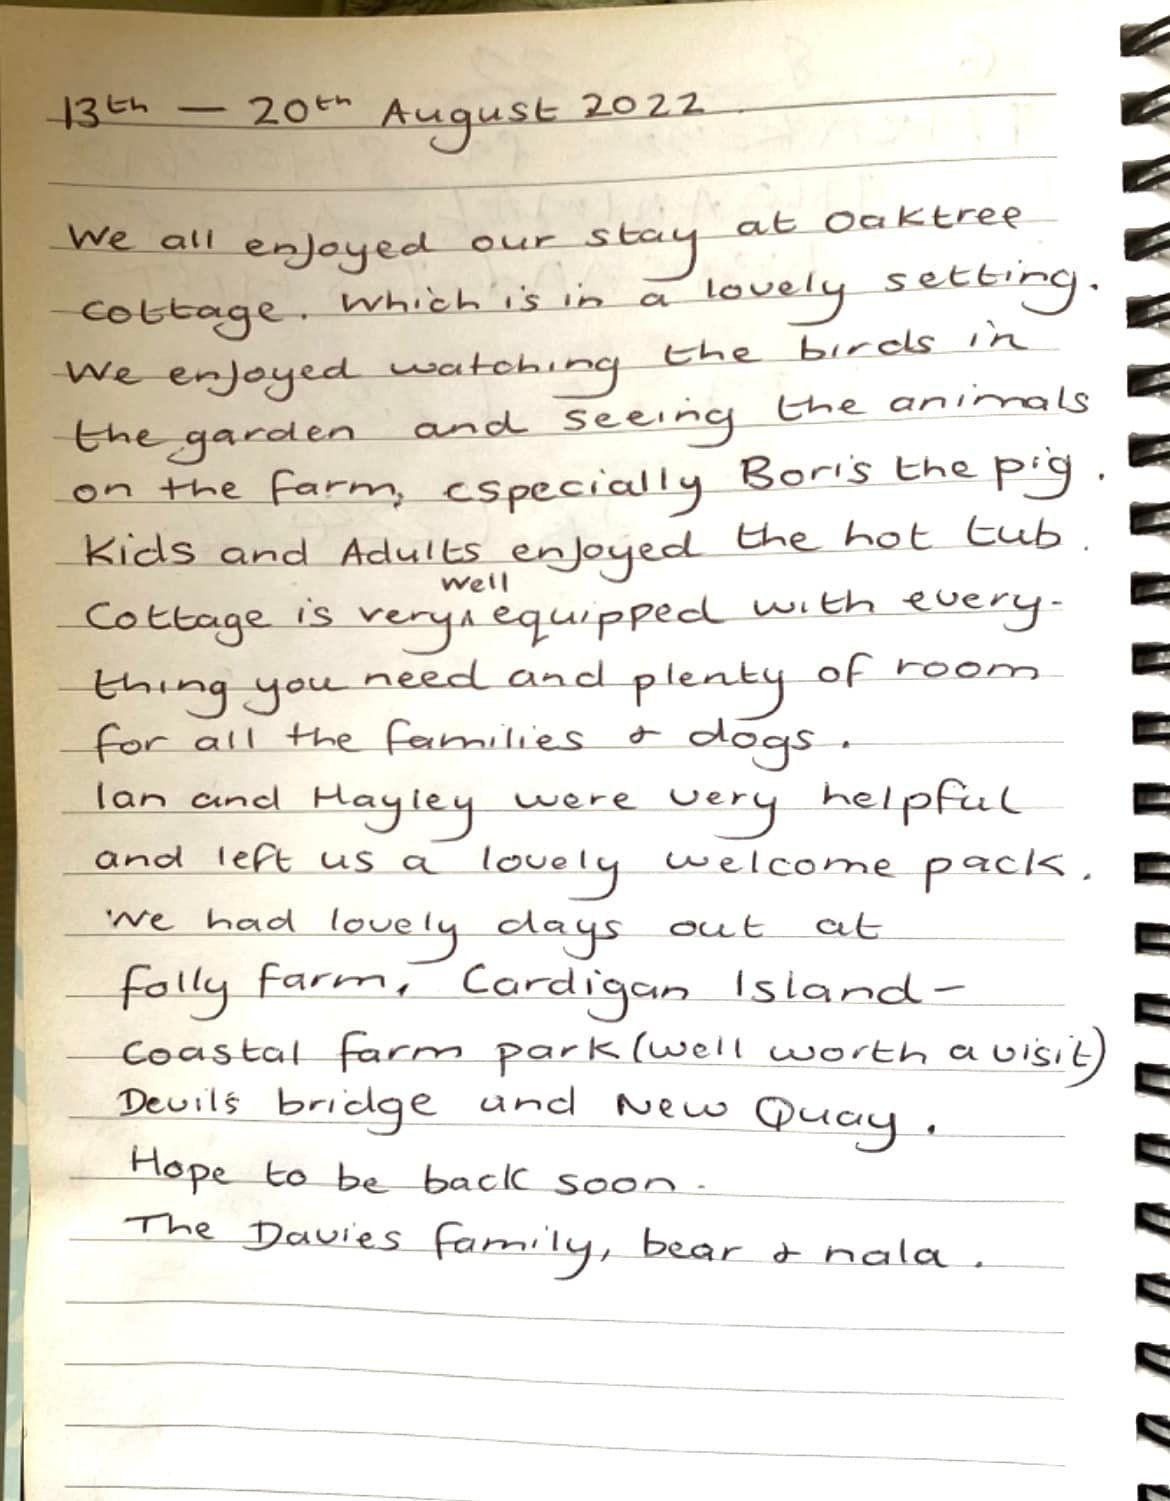 13th — 20th August 2022
We all enjoyed our stay at Oaktree
cottage. Which is in a lovely setting.
We enjoyed watching the birds in
the garden and seeing the animals
on the farm, especially Boris the pig.
Kids and Adults enjoyed the hot tub.
Cottage is very well equipped with every-
thing you need and plenty of room
for all the families & dogs.
Ian and Hayley were very helpful
and left us a lovely welcome pack.
We had lovely days out at
folly farm, Cardigan Island -
coastal farm park (well worth a visit)
Devil's bridge and New Quay.
Hope to be back soon.
The Davies family, bear & nala.